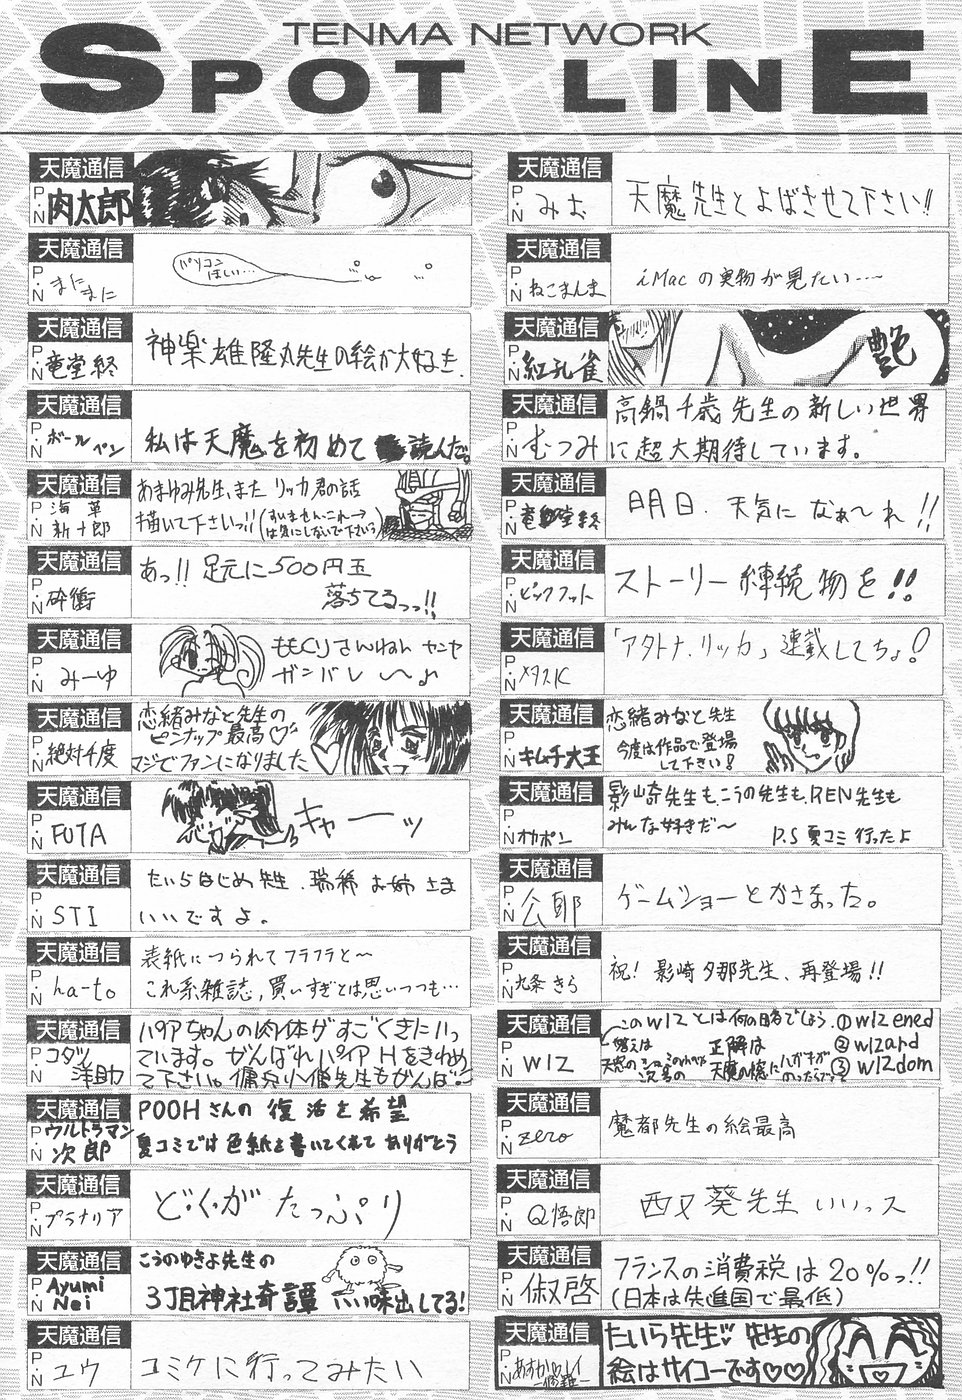 TENMA NETWORK
SPOT LINE
天魔通信
P・N 肉太郎
天魔通信
P・N まにまに
パソコンほしい…
天魔通信
P・N 竜堂終
神楽雄隆丸先生の絵が大好き.
天魔通信
P・N ボールペン
私は天魔を初めて読んだ。
天魔通信
P・N 海草新十郎
あまゆみ先生、また リッカ君の話
描いて下さいっ!!(すいません、これ→
は気にしないで下さいっ)
天魔通信
P・N 砕衝
あっ!! 足元に500円玉
落ちてるっっ!!
天魔通信
P・N みーゆ
ももくりさんねん
ガンバレ 〜♪
天魔通信
P・N 絶対千度
恋緒みなと先生の
ピンナップ最高♡
マジでファンになりました
天魔通信
P・N FUTA
キャーッ
天魔通信
P・N STI
たいらはじめ先生、瑞稀お姉さま
いいですよ。
天魔通信
P・N ha-to
表紙につられてフラフラと〜
これ系雑誌,買いすぎとは思いつつも…
天魔通信
P・N コダツ洋助
パイアちゃんの肉体がすごくきにいっ
ています。がんばれパイア Hをきわめ
て下さい。傭兵小僧先生もがんば
天魔通信
P・N ウルトラマン次郎
POOHさんの 復活を希望
夏コミでは色紙を書いてくれて ありがとう
天魔通信
P・N プラナリア
どくがたっぷり
天魔通信
P・N Ayumi Nei
こうのゆきよ先生の
3丁目神社奇譚 いい味出してる!
天魔通信
P・N ユウ
コミケに行ってみたい
天魔通信
P・N みお
天魔先生とよばさせて下さい!!
天魔通信
P・N ねこまんま
iMacの実物が見たい……
天魔通信
P・N 紅孔雀
艶
天魔通信
P・N むつみ
高鍋千歳先生の新しい世界
に超大期待しています。
天魔通信
P・N 竜堂終
明日、天気になぁ〜れ!!
天魔通信
P・N ビックフット
ストーリー連続物を!!
天魔通信
P・N メタスK
「アタトナ、リッカ」連載してちょ!
天魔通信
P・N キムチ大王
恋緒みなと先生
今度は作品で登場
して下さい!
天魔通信
P・N オカポン
影崎先生も、こうの先生も、REN先生も
みんな好きだ〜 P.S夏コミ行ったよ
天魔通信
P・N 公耶
ゲームショーとかさなった。
天魔通信
P・N 九条きら
祝! 影崎夕那先生、再登場!!
天魔通信
P・N WIZ
このWIZとは何の略でしょう.①wizened
答えは 正解は ②wizard
次号の 天魔の憶に ③wizdom
天魔通信
P・N zero
魔都先生の絵最高
天魔通信
P・N Q悟郎
西又葵先生いいっス
天魔通信
P・N 俶啓
フランスの消費税は20%っ!!
(日本は先進国で最低)
天魔通信
P・N あすか
たいら先生♡先生の
絵はサイコーです♡♡